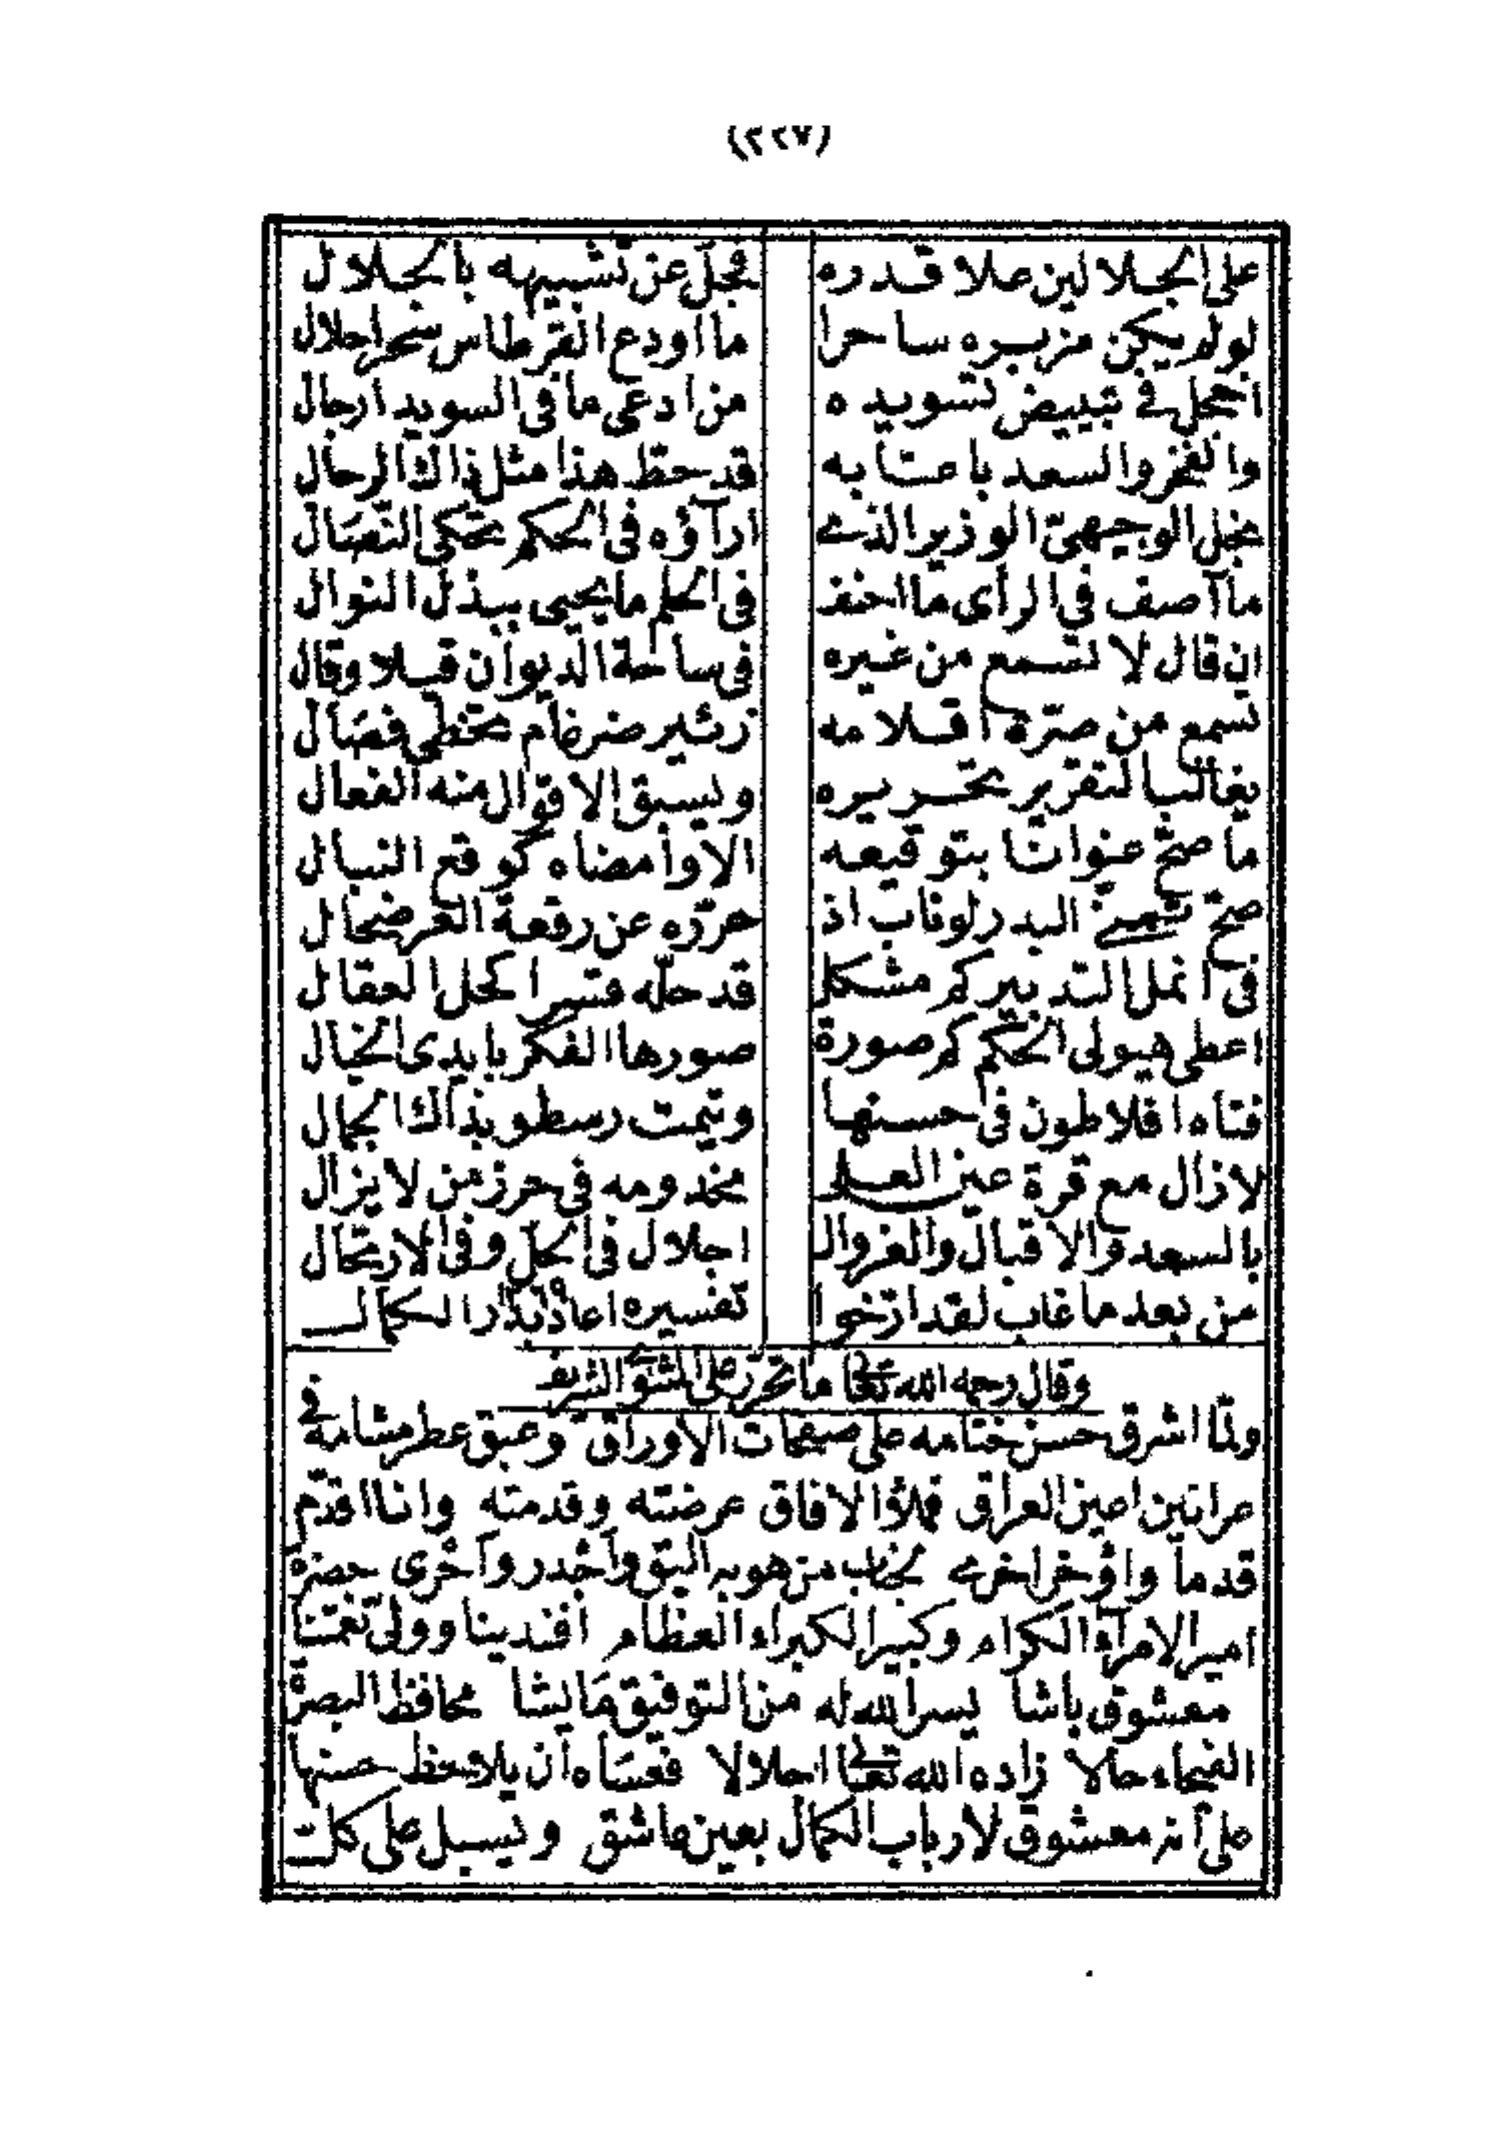 (٢٢٧)
على الجلالين علا قدره فجلّ عن تشبيهه بالجلال
لو لم يكن مزبره ساحرا ما اودع القرطاس سحرا حلال
اخجل في تبييض تسويده من ادعى ما في السويدا رجال
والفخر والسعد باعتابه قد حطّ هذا مثل ذاك الرحال
نجل الوجيهيّ الوزير الذي ارآؤه في الحكم تحكي النّصال
ما آصف في الرأى ما احنف في الحلم ما يحيى ببذل النوال
ان قال لا تسمع من غيره في ساحة الديوان قيلا وقال
تسمع من صرّة اقلامه زئير ضرغام تخطى فصال
يغالب التقرير تحريره ويسبق الاقوال منه الفعال
ما صحّ عنوانا بتوقيعه الا وامضاه كوقع النبال
صحّ البدر لو ناب اذ حرّره عن رقعة العرضحال
في انمل التدبير كم مشكل قد حلّه قسرا كحل العقال
اعطى هيولى الحكم كم صورة صورها الفكر بايدى الخيال
فتاه افلاطون في حسنها وتيمت رسطو بذاك الجمال
لازال مع قرة عين العلى مخدومه في حرز من لا يزال
بالسعد والاقبال والعز وال اجلال في الحلّ وفي الارتحال
من بعد ما غاب لقد ارخوا تفسيره اعاد بدار الكمال
وقال رحمه الله تعالى ما تحرّر على المثنوي الشريف
ولمّا اشرق حسن ختامه على صفحات الاوراق وعبق عطر مشامه في
عرانين اعين العراق فملاؤ الافاق عرضته وقدمته وانا اقدّم
قدما واؤخر اخرى بخطب من هو به اليق وآجدر وآحرى حضرة
امير الامرآء الكرام وكبير الكبراء العظام افندينا وولىّ نعمتنا
معشوق باشا يسر الله له من التوفيق ما يشا محافظ البصرة
الفيحاء حالا زاده الله تعالى اجلالا فعساه ان يلاحظ حسنها
على آنه معشوق لأرباب الكمال بعين عاشق ويسبل على كلّ